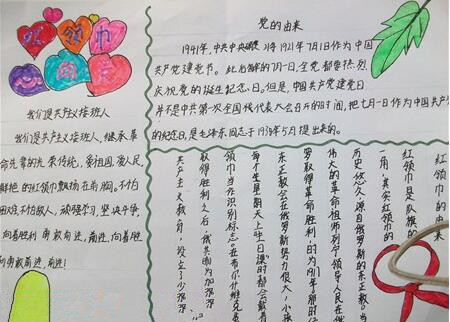 红领巾
心向党
我们是共产主义接班人
我们是共产主义接班人,继承革
命先辈的光荣传统,爱祖国,爱人民,
鲜艳的红领巾飘扬在前胸,不怕
困难,不怕敌人,顽强学习,坚决斗争,
向着胜利勇敢前进,前进,向着胜
利勇敢前进,前进!
党的由来
1941年,中共中央 将1921年7月1日作为中国
共产党建党节。此后 的7月一日,全党都要热烈
庆祝党的诞生纪念日。但是,中国共产党建党日
并不是中共第一次全国代表大会召开的时间,把七月一日作为中国共产
的纪念日,是毛泽东同志于1938年5月提出来的。
红领巾的由来
红领巾是队旗的
一角,其实红领巾的
历史悠久,源自俄罗斯的东正教。当
伟大的革命祖师列宁领导人民在俄
罗取得革命胜利,时为1917年 时
东正教会在俄罗斯势力很大,小孩
每个星期天上"主日课"时都会戴着
领巾当作识别标志。在布尔什维克
取得胜利之后,俄共因为加深
共产主义教育,设立了少